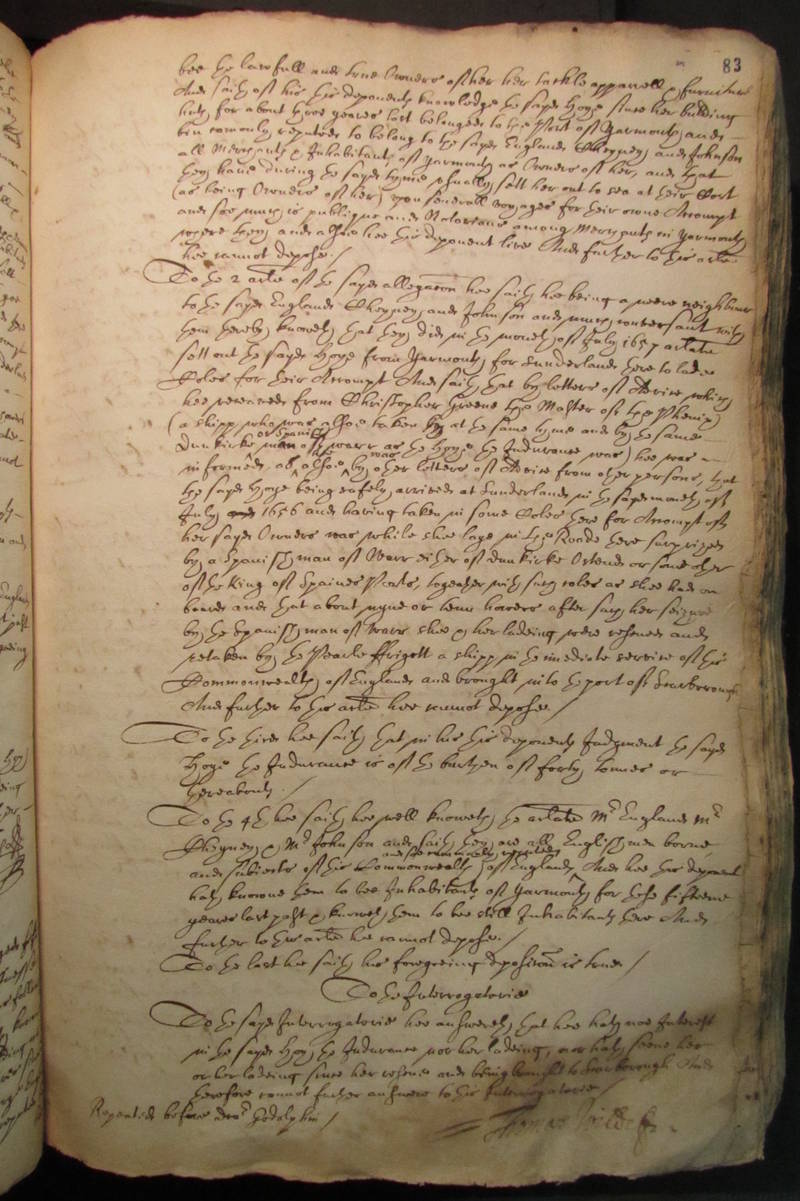 83
bee the lawfull and true Owners of her her tackle apparell & furniture
And saith of his this deponents knowledge the sayd Hoye since her building
hath for about three yeares last belonged to the Port of Yarmouth and
bin comonly reputed to belong to the sayd England Cheyney and Johnson
all Merchants & Inhabitants of Yarmouth as Owners of her, and that
they have during the sayd tyme usually sett her out to sea at their Cost
(as being Owners of her) upon severall voyages for their owne Accompt
and soe much is publique and Notorious among Merchants in Yarmouth
where they and alsoe hee this deponent live And further to this arlte
hee cannot depose./
To the 2 arlte of the sayd allegacon hee saith hee being a neere neighbour
to the sayd England Cheyney and Johnson and much conversant with
them thereby knoweth that they did in the moneth of July 1657 arlate
sett out the sayd Hoye from Yarmouth for Sunderland there to lade
Coles for their Accompt And saith that by letters of Advise which
hee receaved from Christopher Greene the Master of the Phenix
(a shipp who was alsoe taken by at the same tyme and by the same
or Spanish
Dunkirke man of warr as the Hoye the Indurance was) hee was
informed, as alsoe by other letters of Advise from other persons, that
the sayd Hoye being safely arrived at Sunderland in the sayd moneth of
July 1656 and having taken in some Coles there for Accompt of
her sayd Owners was while shee laye in the Roade there surprized
by a Spanish man of Warr either of Dunkirke Ostend or some other
of the King of Spaines Ports, together with such coles as shee had on
board and that about nyne or tenn howers after such her seizure
by the Spanish man of Warr shee & her ladeing were rescued and
retaken by the Pearle ffrigott a shipp in the imediate service of this
Commonwealth of England and brought into the port of Scarborough
And further to this arlte hee cannot depose./
To the third hee saith that in his this deponents Judgment the sayd
Hoye the Indurance is of the burthen of forty tonnes or
thereabouts./
To the 4th hee saith hee well knoweth the arlate Mr England Mr
Cheyney & Mr Johnson and saith they are all Englishmen borne
and soe comonly reputed
and subiects of this Commonwealth of England, And hee this deponent
hath knowne them to bee Inhabitants of Yarmouth for these fifteene
yeares last past & knoweth them to bee still Inhabitants there And
further to this arlte hee cannot depose./
To the last hee saith his foregoeing deposicon is true/
To the Interrogatorie
To the sayd Interrogatorie hee answereth that hee hath noe Interest
in the sayd Hoy the Indurance nor her ladeing, nor hath seene her
or her ladeing since her rescue and being brought to Scarborough And
therefore cannot further answere to this Interrogatorie/
Repeated before docr Godolphin/
Thomas